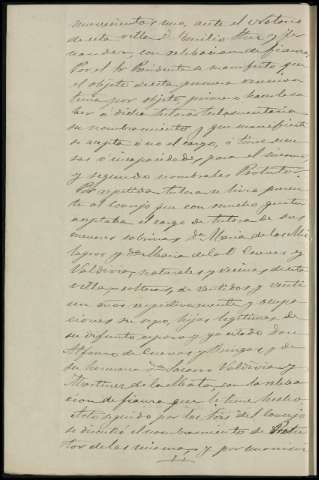 novecientos uno, ante el Notario
de esta villa D. Emilio Diaz y Fer
nandez, con relebacion de fianza.
Por el Sr. Presidente se manifesto que
el objeto de esta primera reunion
tiene por objeto, primero hacerle sa
ber á dicha tutora testamentaria
su nombramiento y que manifieste
si acepta ó no el cargo, ó tiene escu
sas ó incapacidades, para el mismo,
y segundo nombrarles Protutor.
Por repetida tutora se hizo presen
te al consejo que con mucho gusto
aceptaba el cargo de tutora de sus
menores sobrinas Dª Maria de los Mi
lagros y Dª Maria de la O Cuevas y
Valdivia, naturales y vecinas de esta
villa, solteras, de ventidos y veinte
un años respectivamente y ocupa
ciones de sexo, hijas legítimas de
su difunto esposo y ya citado don
Alfonso de Cuevas y Burgos, y de
su hermana Dª Socorro Valdivia y
Martinez de la Mata, con la relebacion
de fianza que le tiene hecha
Acto seguido por los Sres. del Consejo
se discutió el nombramiento de Protu
tor de las mismas y por unanimi